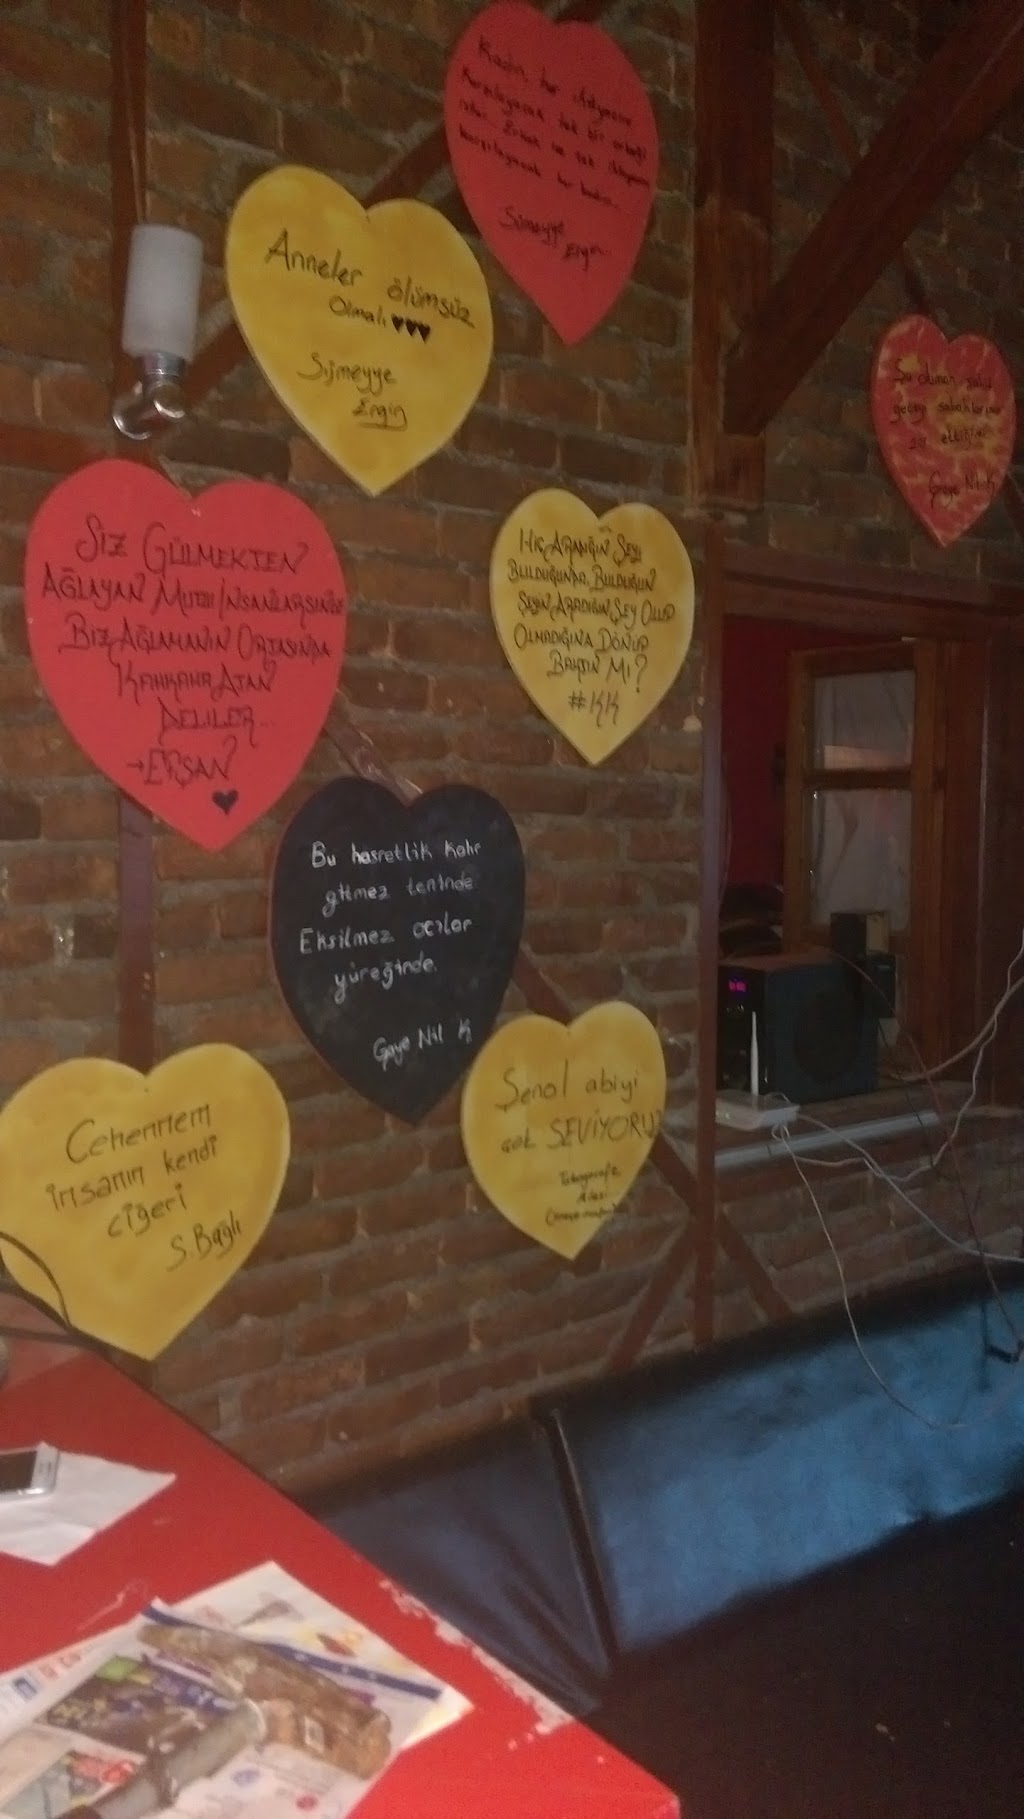 Kadın, her ihtiyacını
karşılayacak tek bir erkeği
ister. Erkek ise tek ihtiyacını
karşılayacak her kadını...
Sümeyye
Ergin
Anneler ölümsüz
Olmalı ♥♥♥
Sümeyye
Ergin
Şu duman
gelip sabahlarıma
Gaye Nil K
SİZ GÜLMEKTEN
AĞLAYAN MUTLU İNSANLARSINIZ
BİZ AĞLAMANIN ORTASINDA
KAHKAHA ATAN
DELİLER...
→ERSAN
♥
HİÇ ARADIĞIN ŞEYİ
BULDUĞUNDA, BULDUĞUN
ŞEYİN ARADIĞIN ŞEY OLUP
OLMADIĞINA DÖNÜP
BAKTIN MI?
#KK
Bu hasretlik kahr
gitmez teninde
Eksilmez acılar
yüreğinde.
Gaye Nil K
Şenol abiyi
çok SEVİYORUZ
Cehennem
insanın kendi
ciğeri
S.Bağlı